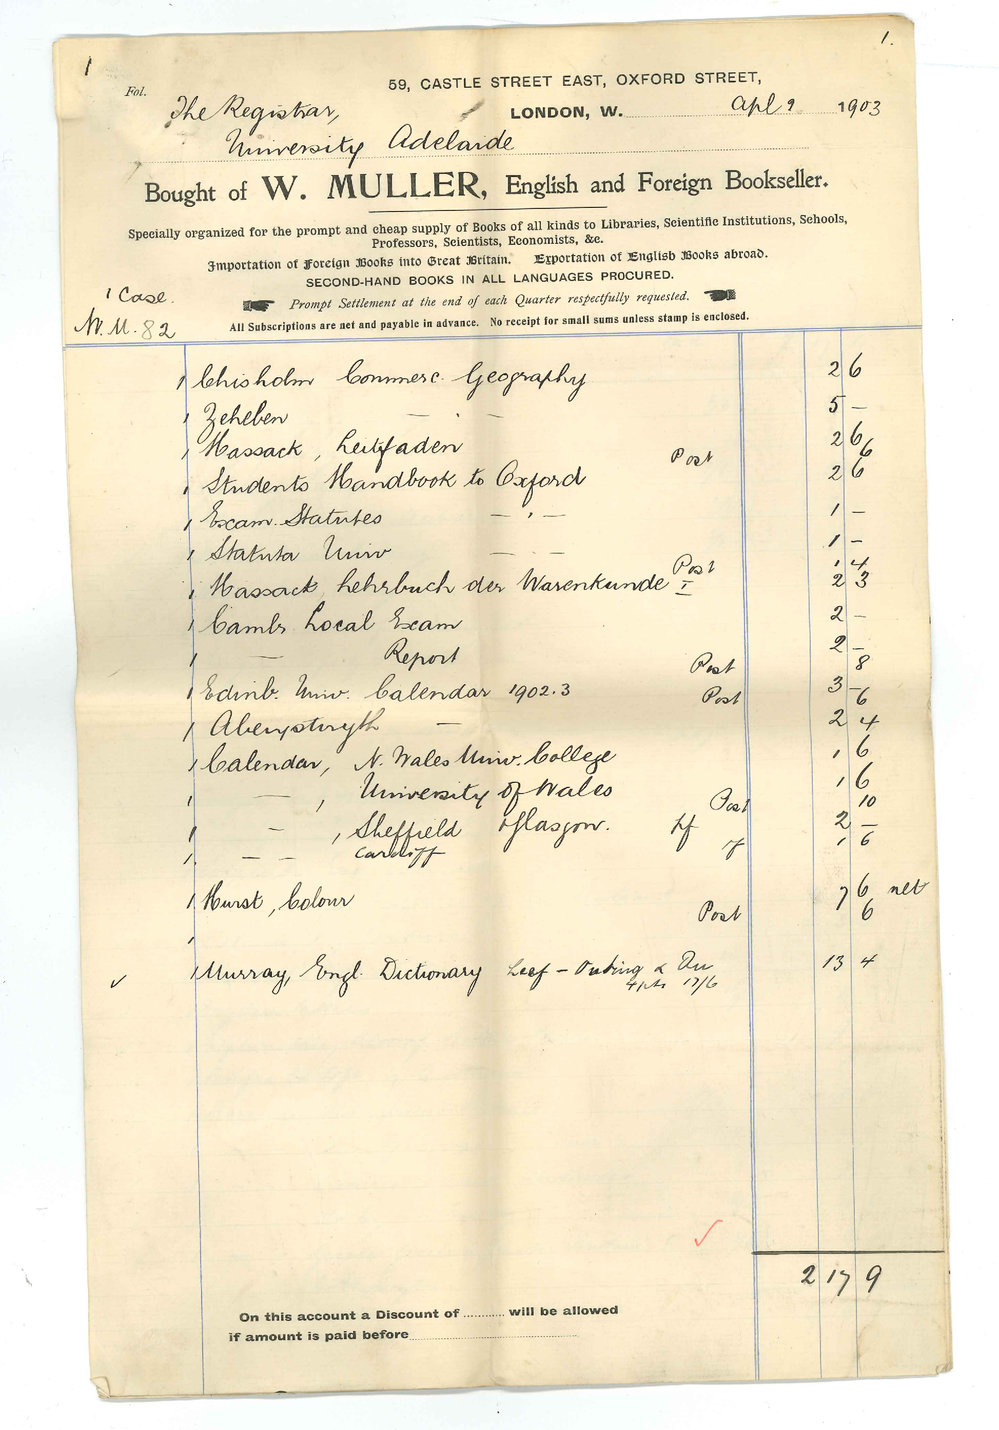 1 1.
Fol.
59, CASTLE STREET EAST, OXFORD STREET,
The Registrar, LONDON, W. Apl 9 1903
University Adelaide
Bought of W. MULLER, English and Foreign Bookseller.
Specially organized for the prompt and cheap supply of Books of all kinds to Libraries, Scientific Institutions, Schools,
Professors, Scientists, Economists, &c.
Importation of Foreign Books into Great Britain. Exportation of English Books abroad.
SECOND-HAND BOOKS IN ALL LANGUAGES PROCURED.
1 Case.
Prompt Settlement at the end of each Quarter respectfully requested.
W. M. 82
All Subscriptions are net and payable in advance. No receipt for small sums unless stamp is enclosed.
1 Chisholm Commerc. Geography 2 6
1 Zeheben — . — 5 —
1 Hassack, Leitfaden 2 6
Post 6
1 Students Handbook to Oxford 2 6
1 Exam. Statutes — . — 1 —
1 Statuta Univ — . — 1 —
Post 1 4
1 Hassack, Lehrbuch der Warenkunde I 2 3
1 Cambr Local Exam 2 —
1 — Report 2 —
Post 8
1 Edinb. Univ. Calendar 1902.3 3 —
Post 6
1 Aberystwyth — 2 4
1 Calendar, N. Wales Univ. College 1 6
1 — , University of Wales 1 6
Post 10
1 — , Sheffield Glasgow. 2 —
1. — — Cardiff 1 6
1 Hurst, Colour 7 6 net
Post 6
1
1 Murray, Engl. Dictionary Leef — Outing & 13 4
4 pts 17/6
2 17 9
On this account a Discount of .......... will be allowed
if amount is paid before